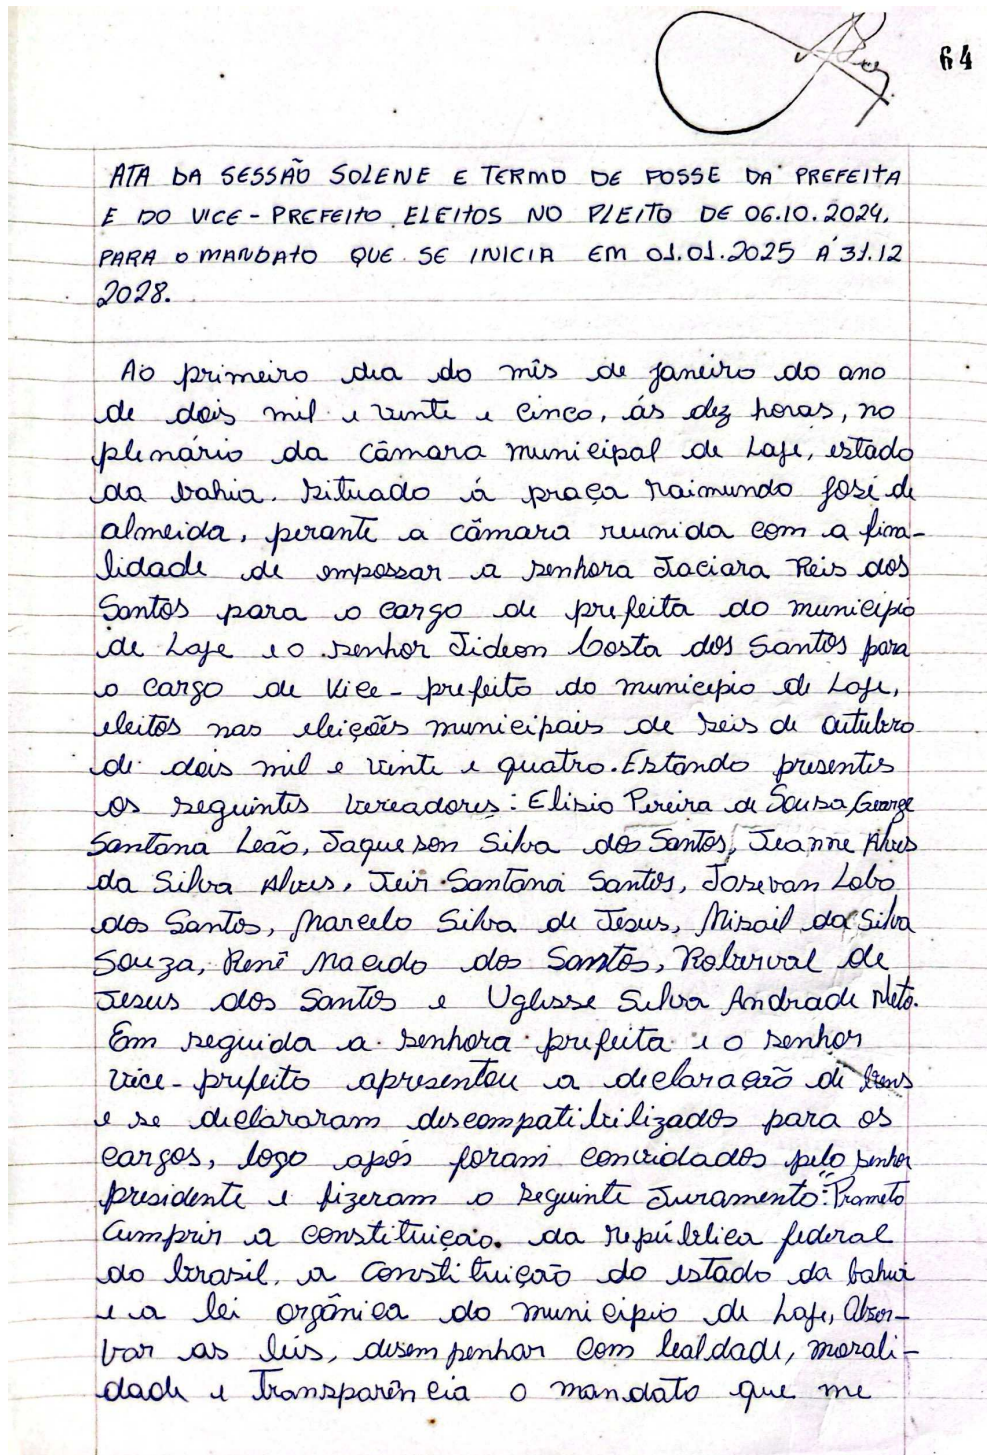 64
ATA DA SESSÃO SOLENE E TERMO DE POSSE DA PREFEITA
E DO VICE-PREFEITO ELEITOS NO PLEITO DE 06.10.2024.
PARA O MANDATO QUE SE INICIA EM 01.01.2025 Á 31.12
2028.
Ao primeiro dia do mês de janeiro do ano
de dois mil e vinte e cinco, ás dez horas, no
plenário da Câmara municipal de Laje, estado
da bahia. situado á praça Raimundo José de
almeida, perante a câmara reunida com a fina-
lidade de empossar a senhora Jaciara Reis dos
Santos para o cargo de prefeita do município
de Laje e o senhor Jideon Costa dos Santos para
o cargo de Vice-prefeito do município de Laje,
eleitos nas eleições municipais de seis de outubro
de dois mil e vinte e quatro. Estando presentes
os seguintes vereadores: Elisio Pereira de Sousa, George
Santana Leão, Jaqueson Silva dos Santos, Jeanne Alves
da Silva Alves, Jeir Santana Santos, Josevan Lobo
dos Santos, Marcelo Silva de Jesus, Misail da Silva
Souza, Renê Macedo dos Santos, Roberval de
Jesus dos Santos e Uglisse Silva Andrade Neto.
Em seguida a senhora prefeita e o senhor
vice-prefeito apresentou a declaração de bens
e se declararam descompatibilizados para os
cargos, logo após foram convidados pelo senhor
presidente e fizeram o seguinte Juramento: Prometo
Cumprir a constituição. da república federal
do brasil, a Constituição do estado da bahia
e a lei orgânica do município de Laje, Obser-
var as leis, desempenhar com lealdade, morali-
dade e Transparência o mandato que me